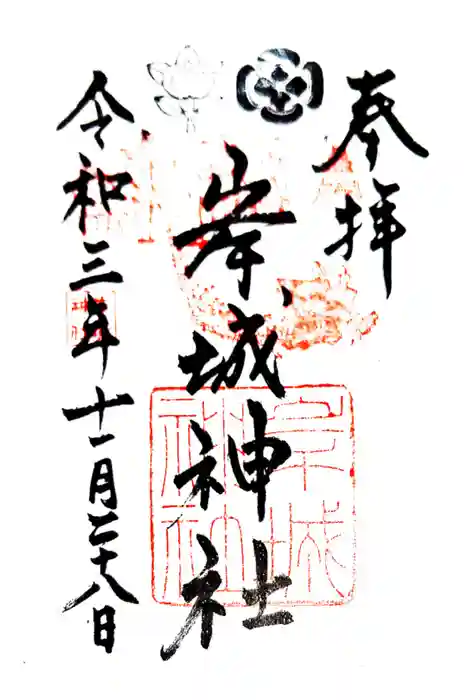 奉拝
岸城神社
令和三年十一月二十八日
岸城神社